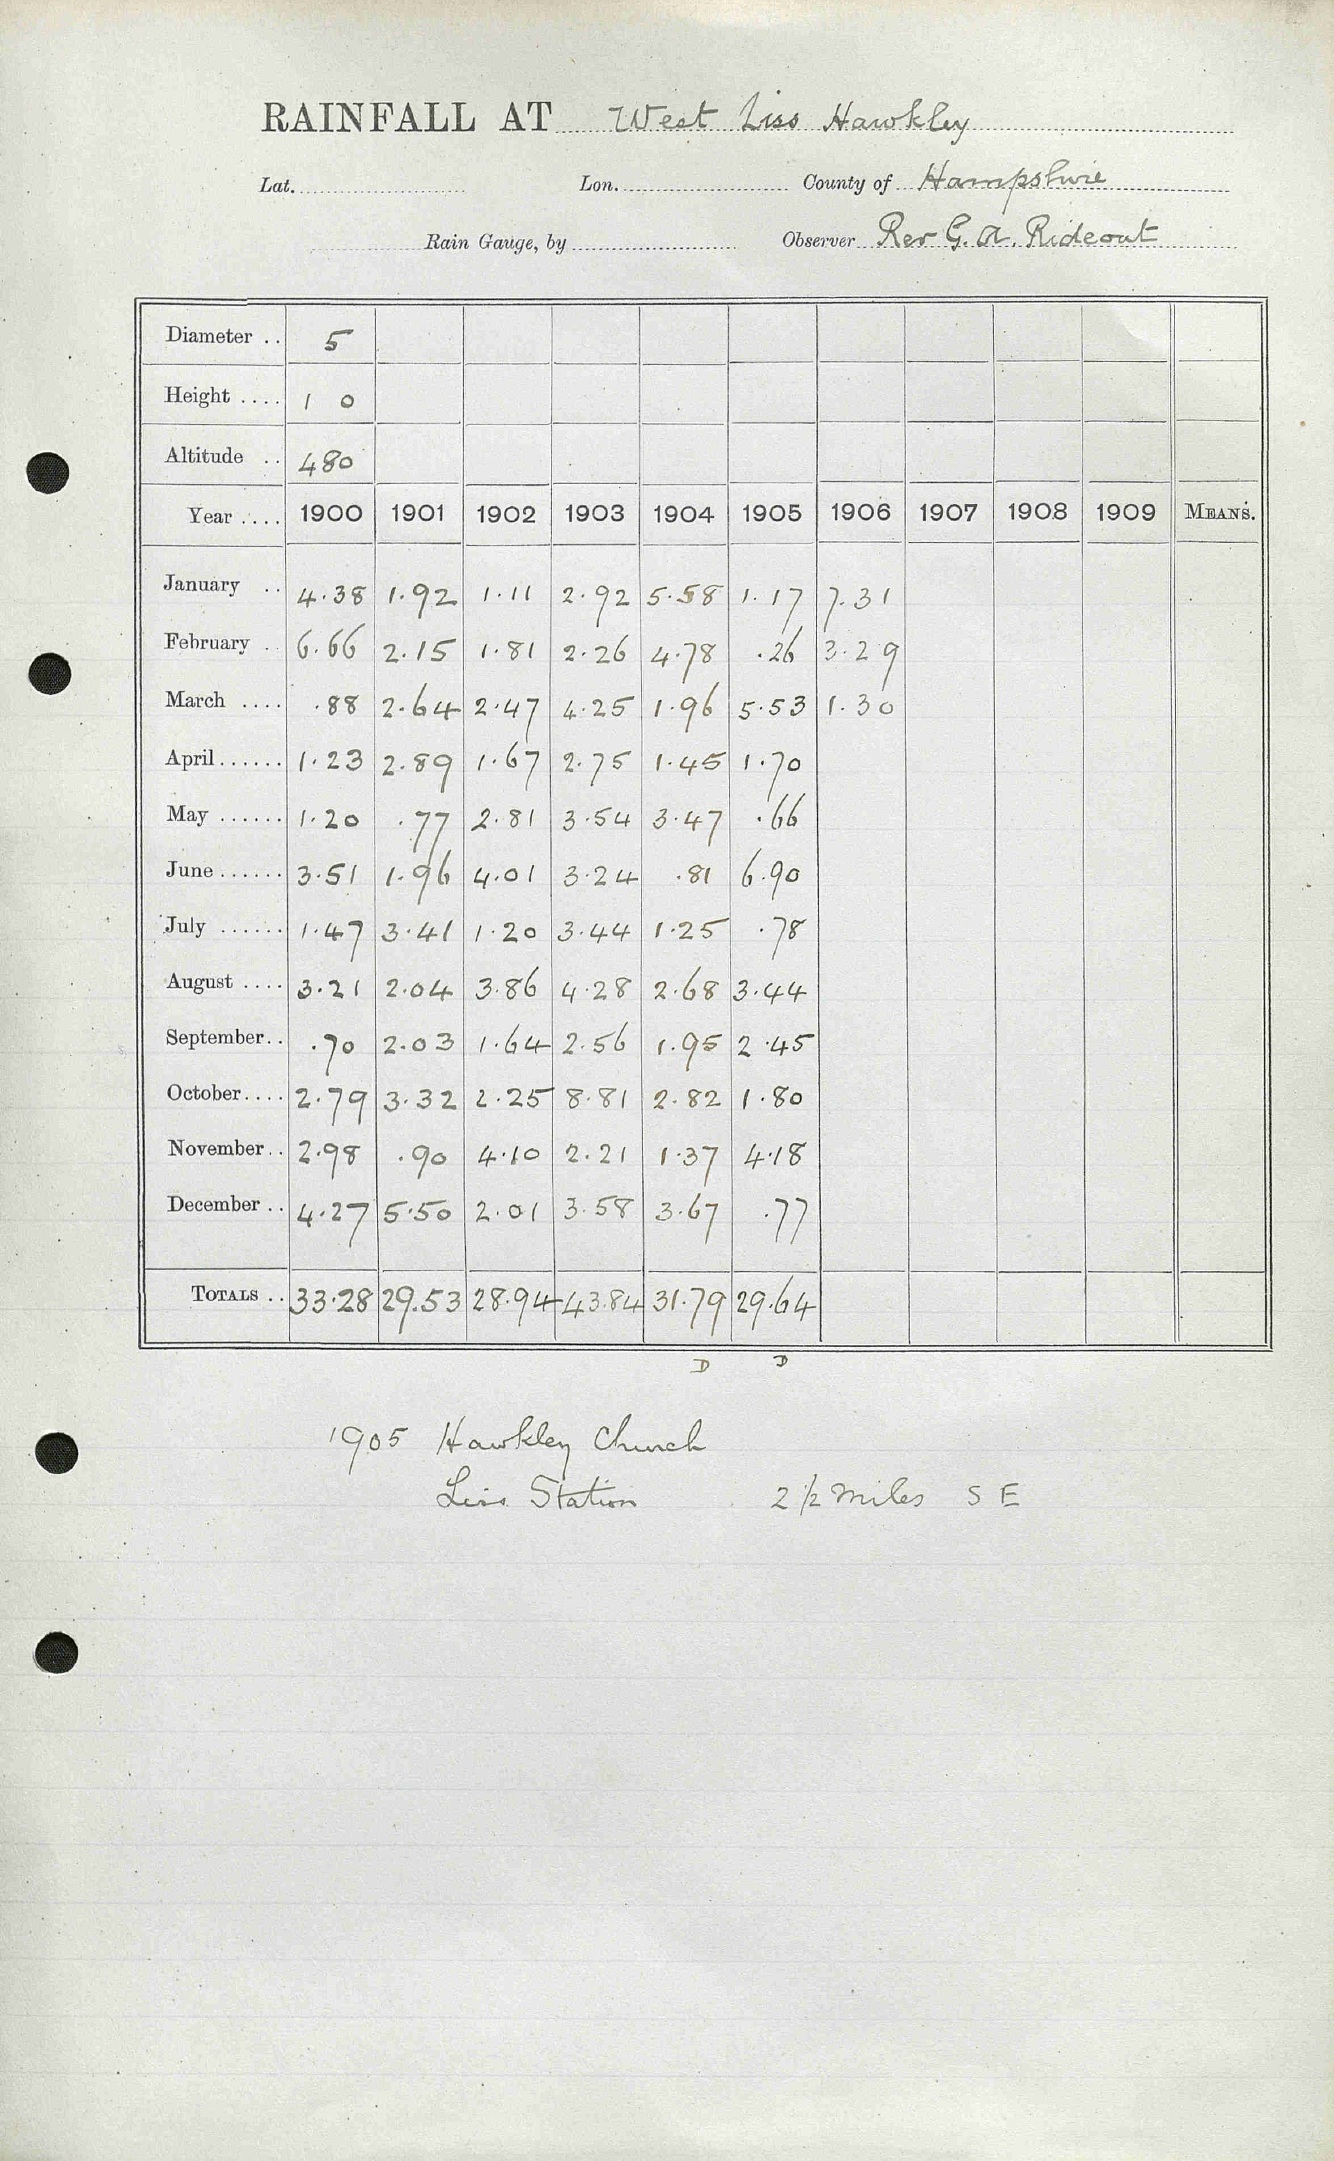 RAINFALL AT West Liss Hawkley
Lat. Lon. County of Hampshire
Rain Gauge, by Observer Rev G. A. Rideout
Diameter .. 5
Height .... 1 0
Altitude .. 480
Year .... 1900 1901 1902 1903 1904 1905 1906 1907 1908 1909 MEANS.
January .. 4.38 1.92 1.11 2.92 5.58 1.17 7.31
February .. 6.66 2.15 1.81 2.26 4.78 .26 3.29
March .... .88 2.64 2.47 4.25 1.96 5.53 1.30
April...... 1.23 2.89 1.67 2.75 1.45 1.70
May ...... 1.20 .77 2.81 3.54 3.47 .66
June...... 3.51 1.96 4.01 3.24 .81 6.90
July ...... 1.47 3.41 1.20 3.44 1.25 .78
August .... 3.21 2.04 3.86 4.28 2.68 3.44
September.. .70 2.03 1.64 2.56 1.95 2.45
October.... 2.79 3.32 2.25 8.81 2.82 1.80
November.. 2.98 .90 4.10 2.21 1.37 4.18
December .. 4.27 5.50 2.01 3.58 3.67 .77
TOTALS .. 33.28 29.53 28.94 43.84 31.79 29.64
D D
1905 Hawkley Church
Liss Station 2 1/2 miles S E